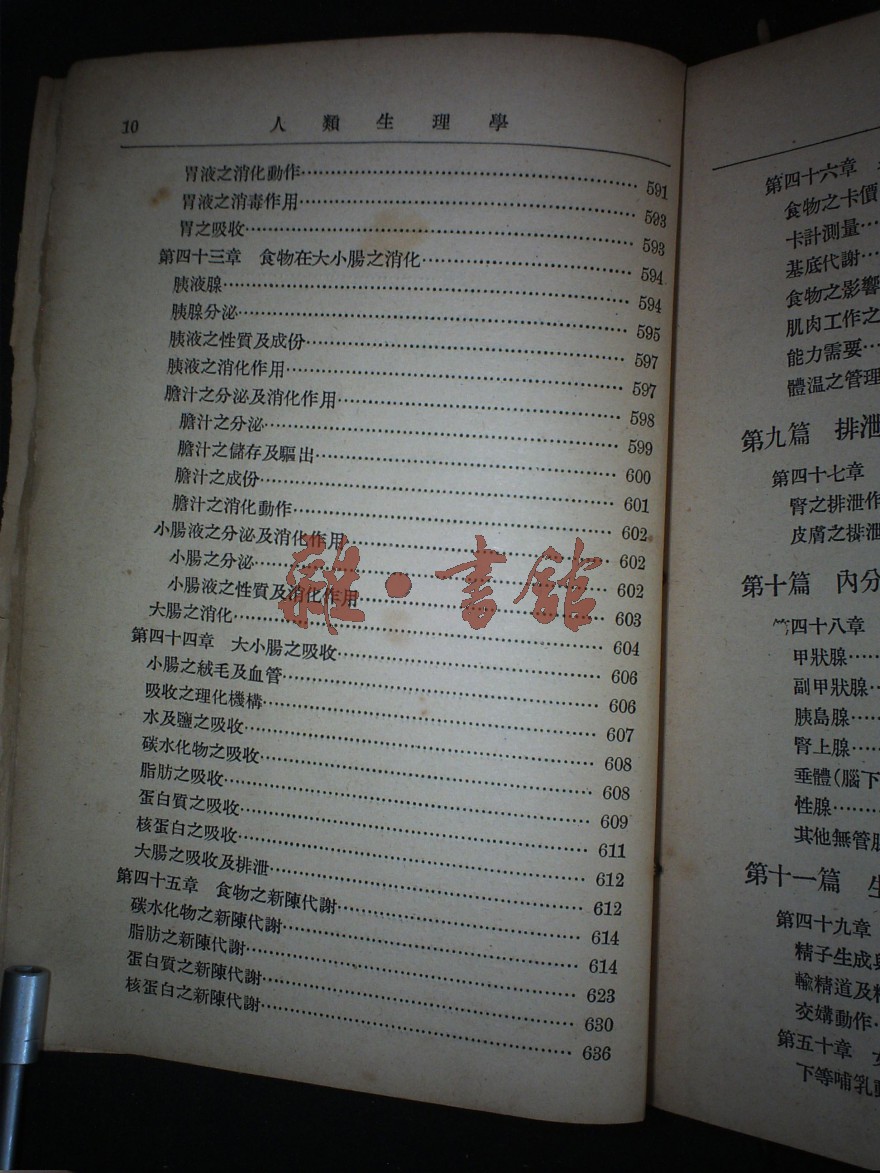 10 人類生理學
胃液之消化動作 591
胃液之消毒作用 593
胃之吸收 593
第四十三章 食物在大小腸之消化 594
胰液腺 594
胰腺分泌 595
胰液之性質及成份 597
胰液之消化作用 597
膽汁之分泌及消化作用 598
膽汁之分泌 599
膽汁之儲存及驅出 600
膽汁之成份 601
膽汁之消化動作 602
小腸液之分泌及消化作用 602
小腸之分泌 602
小腸液之性質及消化作用 603
大腸之消化 604
第四十四章 大小腸之吸收 606
小腸之絨毛及血管 606
吸收之理化機構 607
水及鹽之吸收 608
碳水化物之吸收 608
脂肪之吸收 609
蛋白質之吸收 611
核蛋白之吸收 612
大腸之吸收及排泄 612
第四十五章 食物之新陳代謝 614
碳水化物之新陳代謝 614
脂肪之新陳代謝 623
蛋白質之新陳代謝 630
核蛋白之新陳代謝 636
雜·書館
第四十六章
食物之卡價
卡計測量
基底代謝
食物之影響
肌肉工作之
能力需要
體溫之管理
第九篇 排泄
第四十七章
腎之排泄作
皮膚之排泄
第十篇 內分
第四十八章
甲狀腺
副甲狀腺
胰島腺
腎上腺
垂體(腦下
性腺
其他無管腺
第十一篇 生
第四十九章
精子生成與
輸精道及精
交媾動作
第五十章 女
下等哺乳動